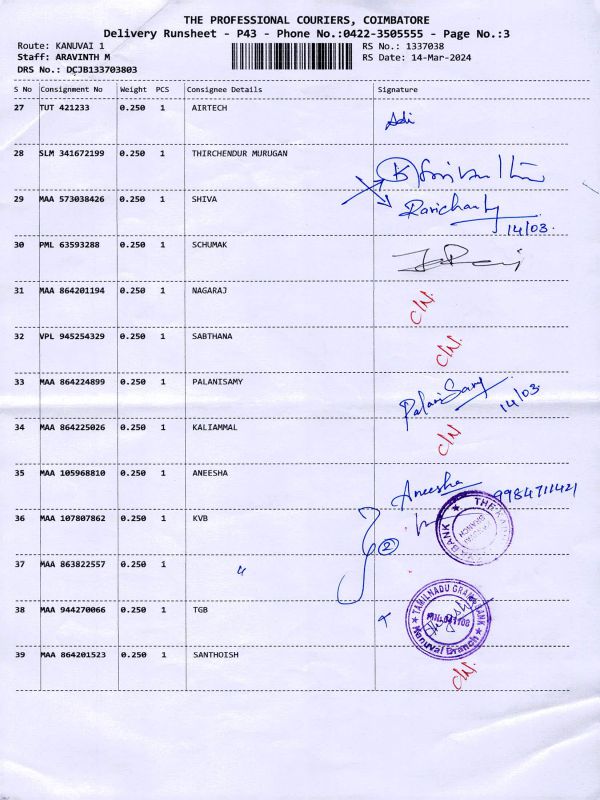 THE PROFESSIONAL COURIERS, COIMBATORE
Delivery Runsheet - P43 - Phone No.:0422-3505555 - Page No.:3
Route: KANUVAI 1 RS No.: 1337038
Staff: ARAVINTH M RS Date: 14-Mar-2024
DRS No.: DCJB133703803
S No Consignment No Weight PCS Consignee Details Signature
27 TUT 421233 0.250 1 AIRTECH
Adi
28 SLM 341672199 0.250 1 THIRCHENDUR MURUGAN
29 MAA 573038426 0.250 1 SHIVA
14/03
30 PML 63593288 0.250 1 SCHUMAK
31 MAA 864201194 0.250 1 NAGARAJ C/N.
32 VPL 945254329 0.250 1 SABTHANA C/N.
33 MAA 864224899 0.250 1 PALANISAMY
PalaniSamy 14/03
34 MAA 864225026 0.250 1 KALIAMMAL C/N
35 MAA 105968810 0.250 1 ANEESHA Aneesha
9984711421
36 MAA 107807862 0.250 1 KVB 2
BRANCH
37 MAA 863822557 0.250 1 "
38 MAA 944270066 0.250 1 TGB
TAMILNADU GRAMA BANK
Kanuvai Branch
39 MAA 864201523 0.250 1 SANTHOISH C/N.